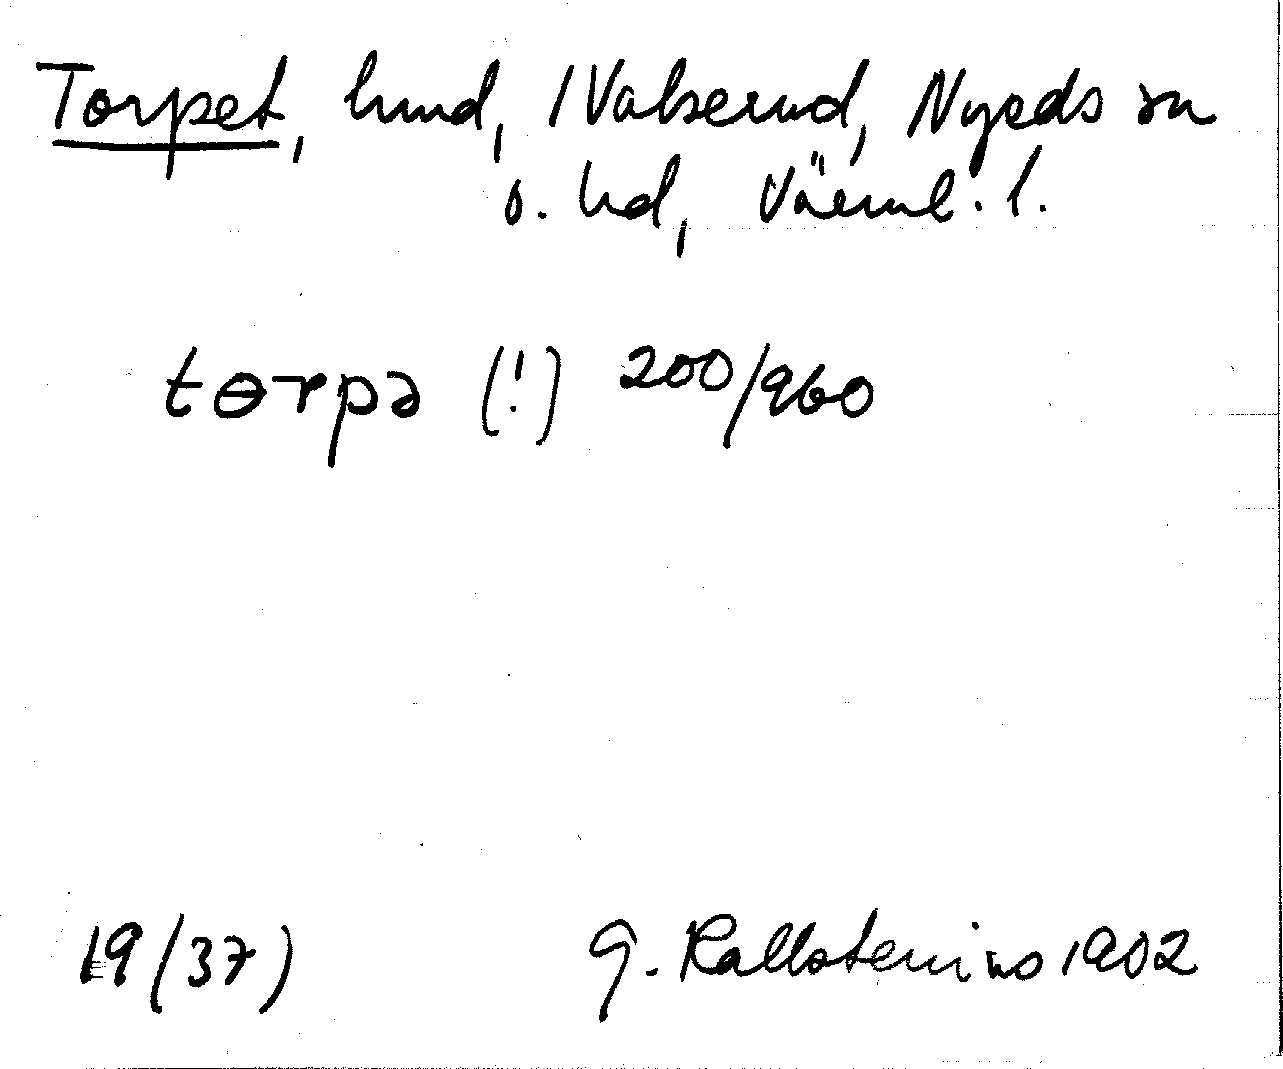 Torpet, hmd, 1 Valserud, Nyeds sn
o. hd, Värml. l.
tɵrpə (!) 200/960
19 (37)
G. Kallstenius 1902